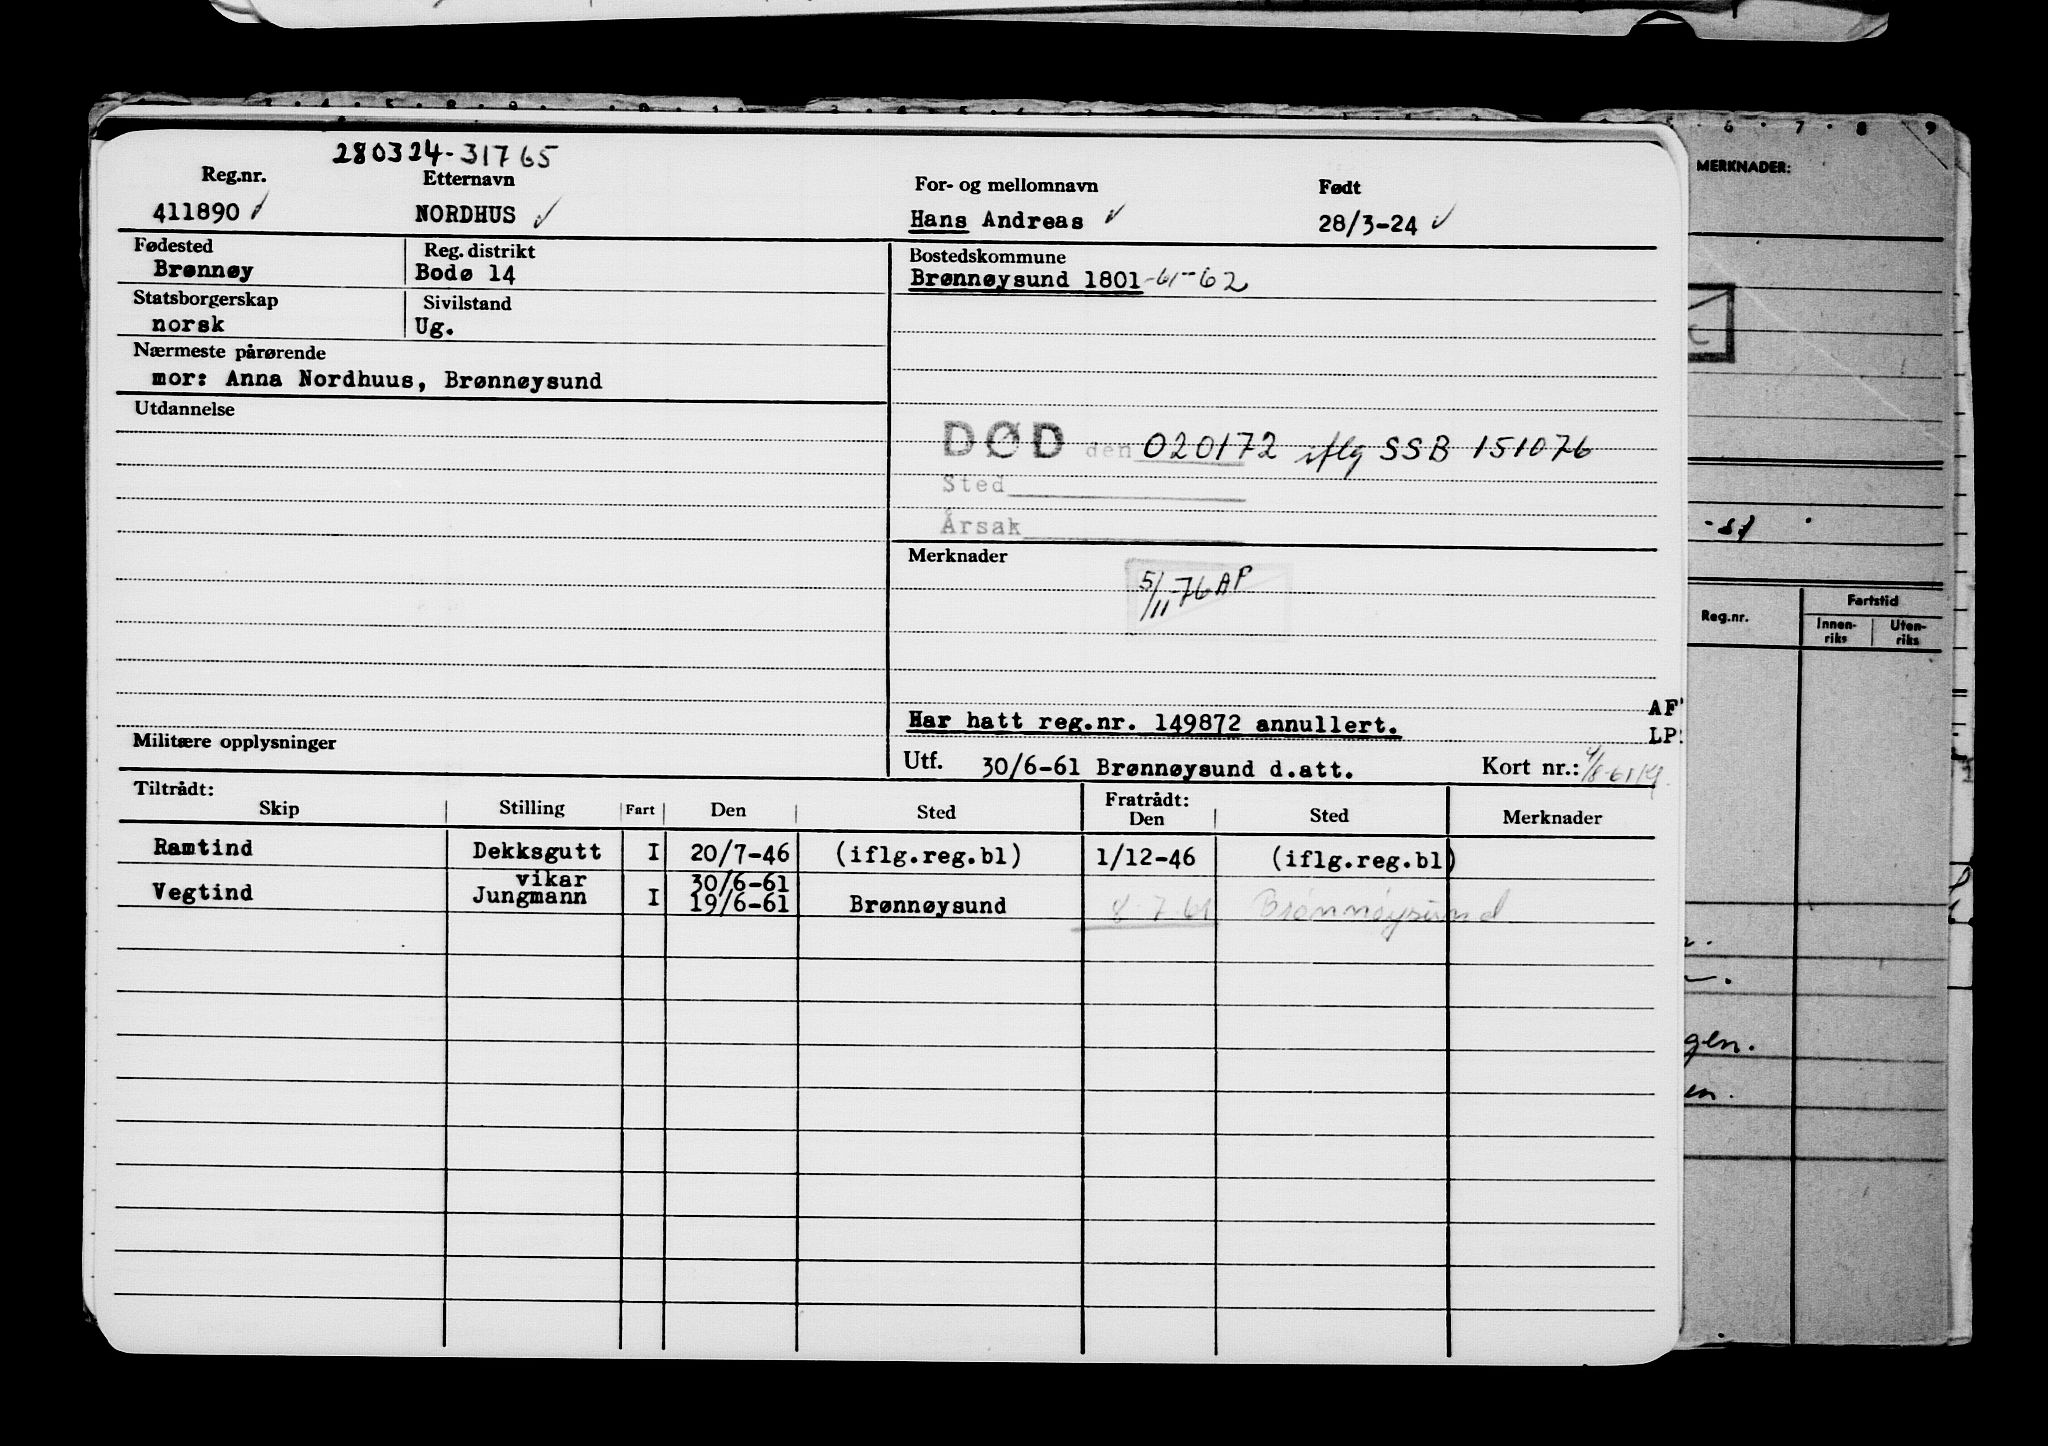 280324-31765
Reg.nr. Etternavn For- og mellomnavn Født
411890 NORDHUS Hans Andreas 28/3-24
Fødested Reg. distrikt Bostedskommune
Brønnøy Bodø 14 Brønnøysund 1801-61-62
Statsborgerskap Sivilstand
norsk Ug.
Nærmeste pårørende
mor: Anna Nordhuus, Brønnøysund
Utdannelse
DØD den 020172 iflg SSB 151076
Sted
Årsak
Merknader
5/11-76 AP
Har hatt reg.nr. 149872 annullert.
AF
LP
Militære opplysninger
Utf. 30/6-61 Brønnøysund d.att. Kort nr.:
Tiltrådt: Fratrådt:
Skip Stilling Fart Den Sted Den Sted Merknader
Ramtind Dekksgutt I 20/7-46 (iflg.reg.bl) 1/12-46 (iflg.reg.bl)
vikar 30/6-61
Vegtind Jungmann I 19/6-61 Brønnøysund 8.7.61 Brønnøysund
5 . 6 . 7 . 8 . 9
MERKNADER:
Reg.nr. Fartstid
Innen-riks Uten-riks
gen.
en.